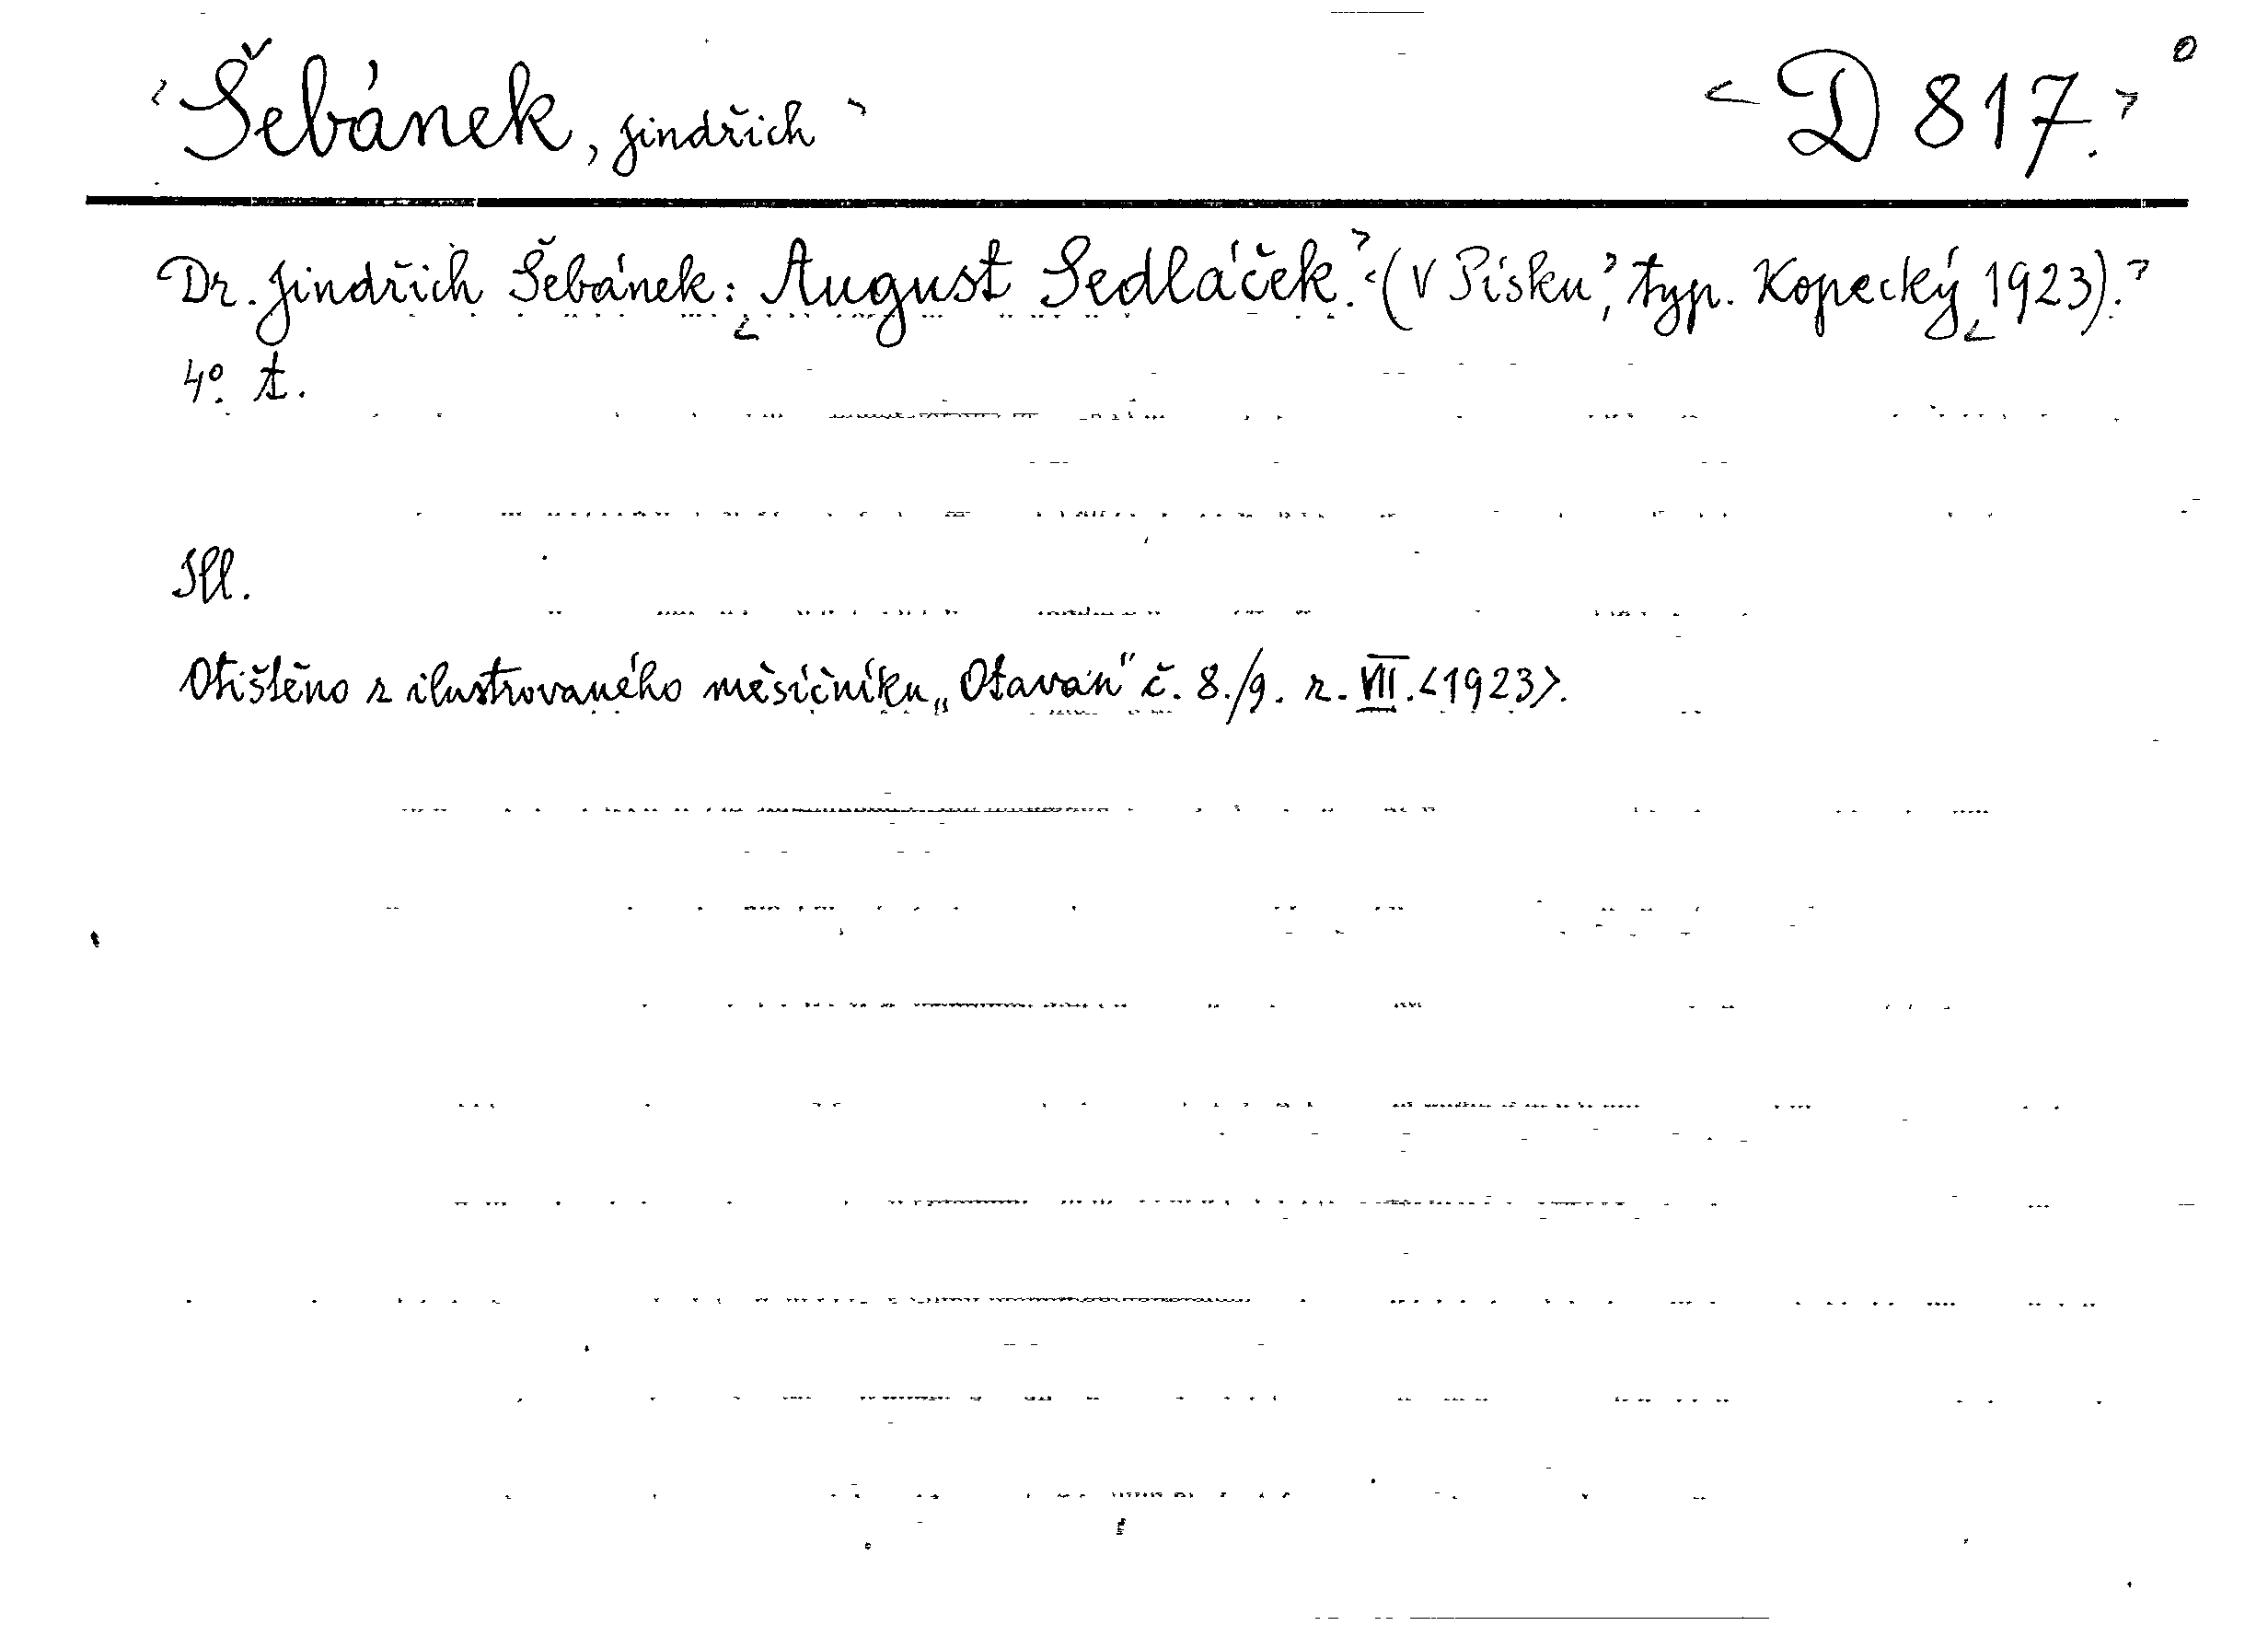 ‹Šebánek, Jindřich› ‹D 817.› 0
Dr. Jindřich Šebánek: ‹August Sedláček.› ‹(V Písku›, typ. Kopecký ‹1923).›
4º. t.
Ill.
Otištěno z ilustrovaného měsíčníku „Otavan" č. 8./9. r. VII. ‹1923›.